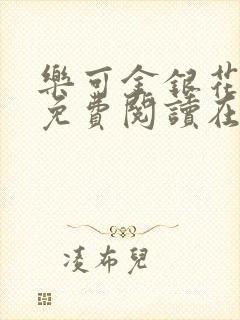 樂可金銀花
免費閱讀在
凌布兒